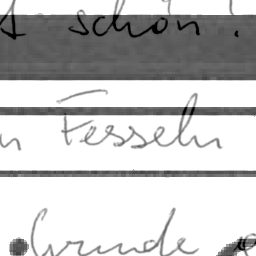 schön!
n Fesseln
Grunde